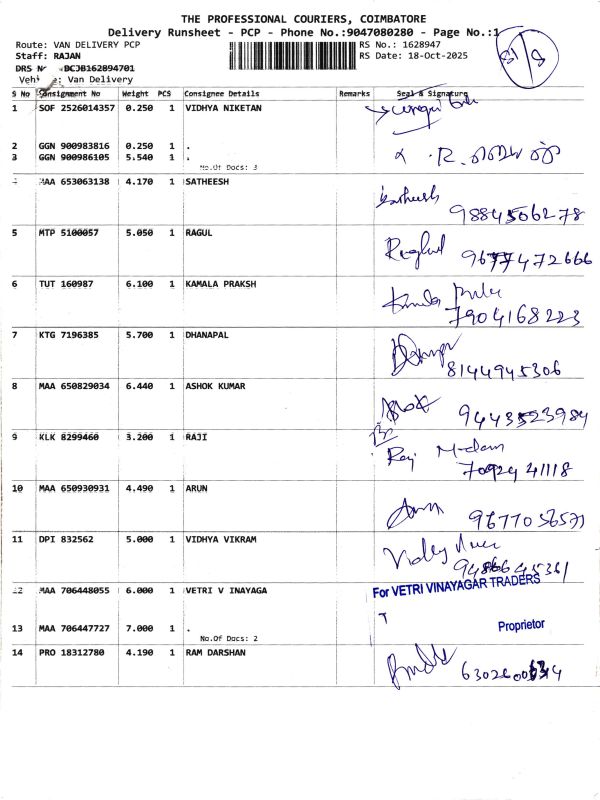 THE PROFESSIONAL COURIERS, COIMBATORE
Delivery Runsheet - PCP - Phone No.:9047080280 - Page No.:1
Route: VAN DELIVERY PCP RS No.: 1628947
Staff: RAJAN RS Date: 18-Oct-2025
DRS No BCJB162894701
Vehicle: Van Delivery
S No Consignment No Weight PCS Consignee Details Remarks Seal & Signature
1 SOF 2526014357 0.250 1 VIDHYA NIKETAN
2 GGN 900983816 0.250 1 .
3 GGN 900986105 5.540 1 .
No.Of Docs: 3
4 MAA 653063138 4.170 1 SATHEESH Satheesh
9884506278
5 MTP 5100057 5.050 1 RAGUL Raghul 9677472666
6 TUT 160987 6.100 1 KAMALA PRAKSH
7904168223
7 KTG 7196385 5.700 1 DHANAPAL
8144945306
8 MAA 650829034 6.440 1 ASHOK KUMAR
9443523984
9 KLK 8299460 3.200 1 RAJI Raji Madam
7092441118
10 MAA 650930931 4.490 1 ARUN Arun
11 DPI 832562 5.000 1 VIDHYA VIKRAM
12 MAA 706448055 6.000 1 VETRI V INAYAGA For VETRI VINAYAGAR TRADERS
13 MAA 706447727 7.000 1 . Proprietor
No.Of Docs: 2
14 PRO 18312780 4.190 1 RAM DARSHAN